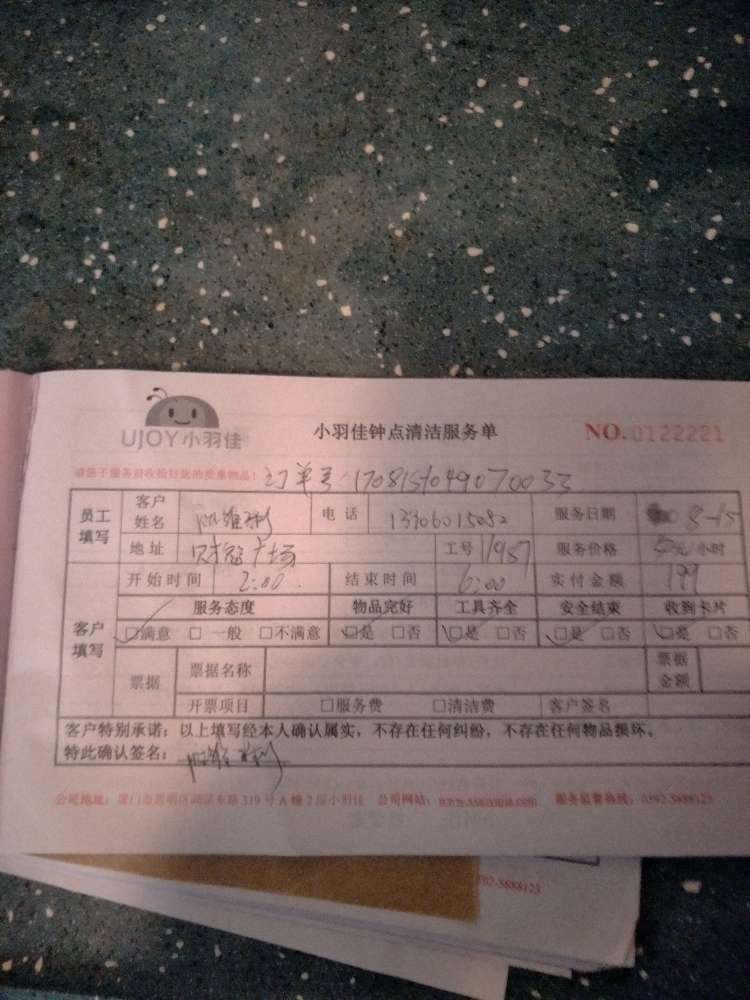 UJOY小羽佳
小羽佳钟点清洁服务单
NO.0122221
订单号:
员工填写
客户姓名
电话
服务日期 8-15
地址 广场
工号 11957
服务价格 元/小时
开始时间 2:00
结束时间 6:00
实付金额 199
客户填写
服务态度 物品完好 工具齐全 安全结束 收到卡片
☑满意 □一般 □不满意 ☑是 □否 ☑是 □否 ☑是 □否 ☑是 □否
票据 票据名称 票据金额
开票项目 □服务费 □清洁费 客户签名
客户特别承诺：以上填写经本人确认属实，不存在任何纠纷，不存在任何物品损坏。
特此确认签名：
公司地址：厦门市思明区湖滨东路319号A幢2层小羽佳 公司网站： 服务监督热线：0592-5888123
592-5888123